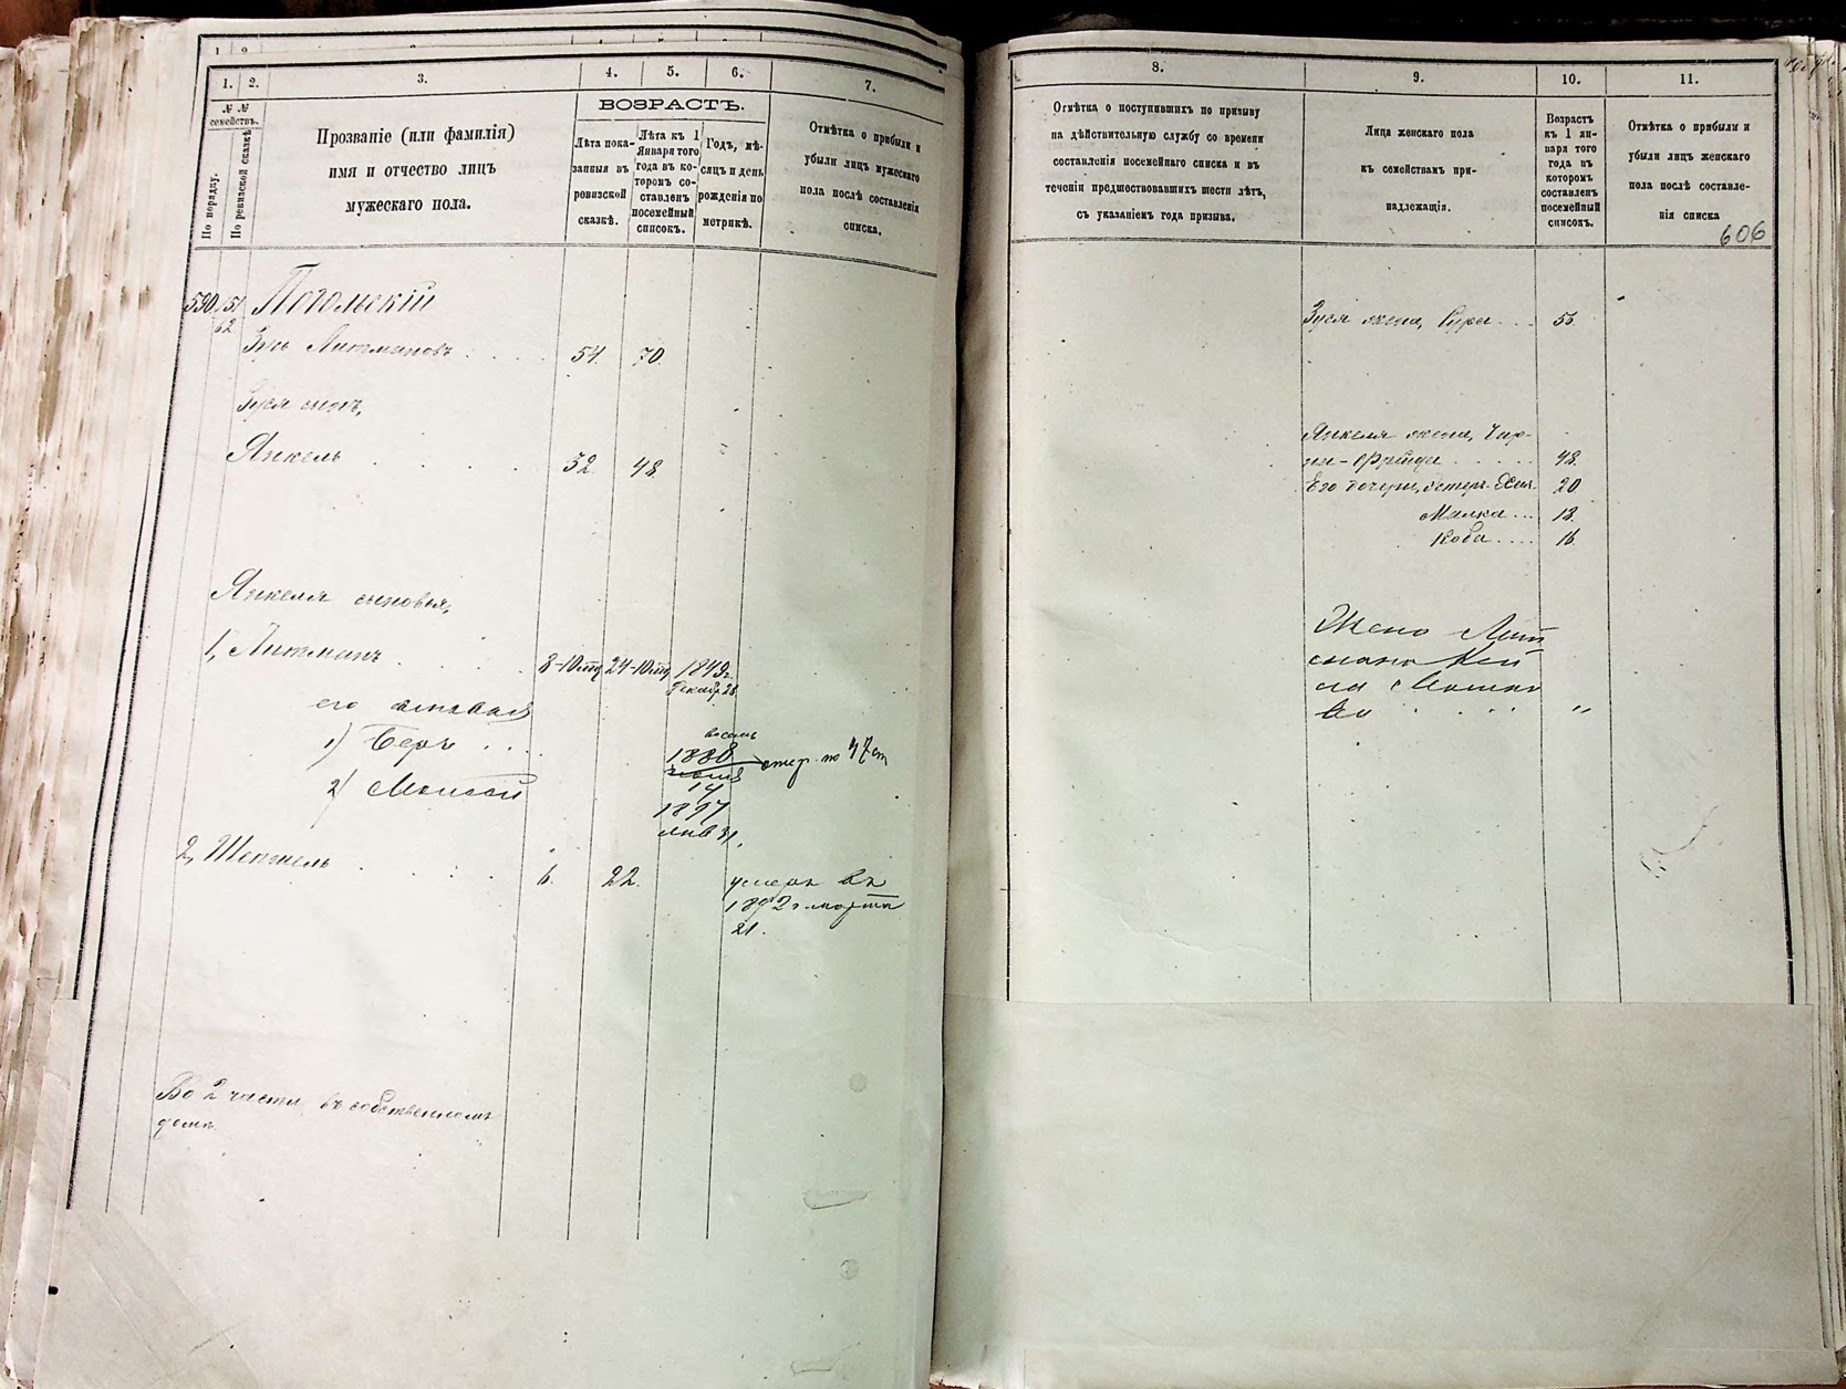 1. 2. 3. 4. 5. 6. 7.
№ № семействъ.
По порядку.
По ревизской сказкѣ
Прозваніе (или фамилія)
имя и отчество лицъ
мужескаго пола.
ВОЗРАСТЪ.
Лѣта пока-
занныя въ
ревизской
сказкѣ.
Лѣта къ 1
Января того
года въ ко-
торомъ со-
ставленъ
посемейный
списокъ.
Годъ, мѣ-
сяцъ и день
рожденія по
метрикѣ.
Отмѣтка о прибыли и
убыли лицъ мужескаго
пола послѣ составленія
списка.
590 151
62
Погольскій
Зусь Литмановъ . . . . 54. 70.
Зуся сынъ,
Янкель . . . . 32. 48.
Янкеля сыновья,
1, Литманъ . . . . 8-10 24-10 1849 г.
Декабр. 28
его сыновья
1) Беръ . . . 1880
14
2) Моисей 1897
янв 31,
2, Шепшель . . . . 6. 22. умеръ въ
1892 г. марта
21.
Во 2 части въ собственномъ
домѣ.
8. 9. 10. 11.
Отмѣтка о поступившихъ по призыву
на дѣйствительную службу со времени
составленія посемейнаго списка и въ
теченіи предшествовавшихъ шести лѣтъ,
съ указаніемъ года призыва.
Лица женскаго пола
къ семействамъ при-
надлежащія.
Возрастъ
къ 1 ян-
варя того
года въ
которомъ
составленъ
посемейный
списокъ.
Отмѣтка о прибыли и
убыли лицъ женскаго
пола послѣ составле-
нія списка
606
Зуся жена, Сура . . . 55.
Янкеля жена, Чар-
на-Фрейда . . . . . 48.
Его дочери, Эстеръ- 20
Малка . . . 18.
Коба . . . . 16.
Жена Лит
мана Кей
ла Мошко
ва . . . . "